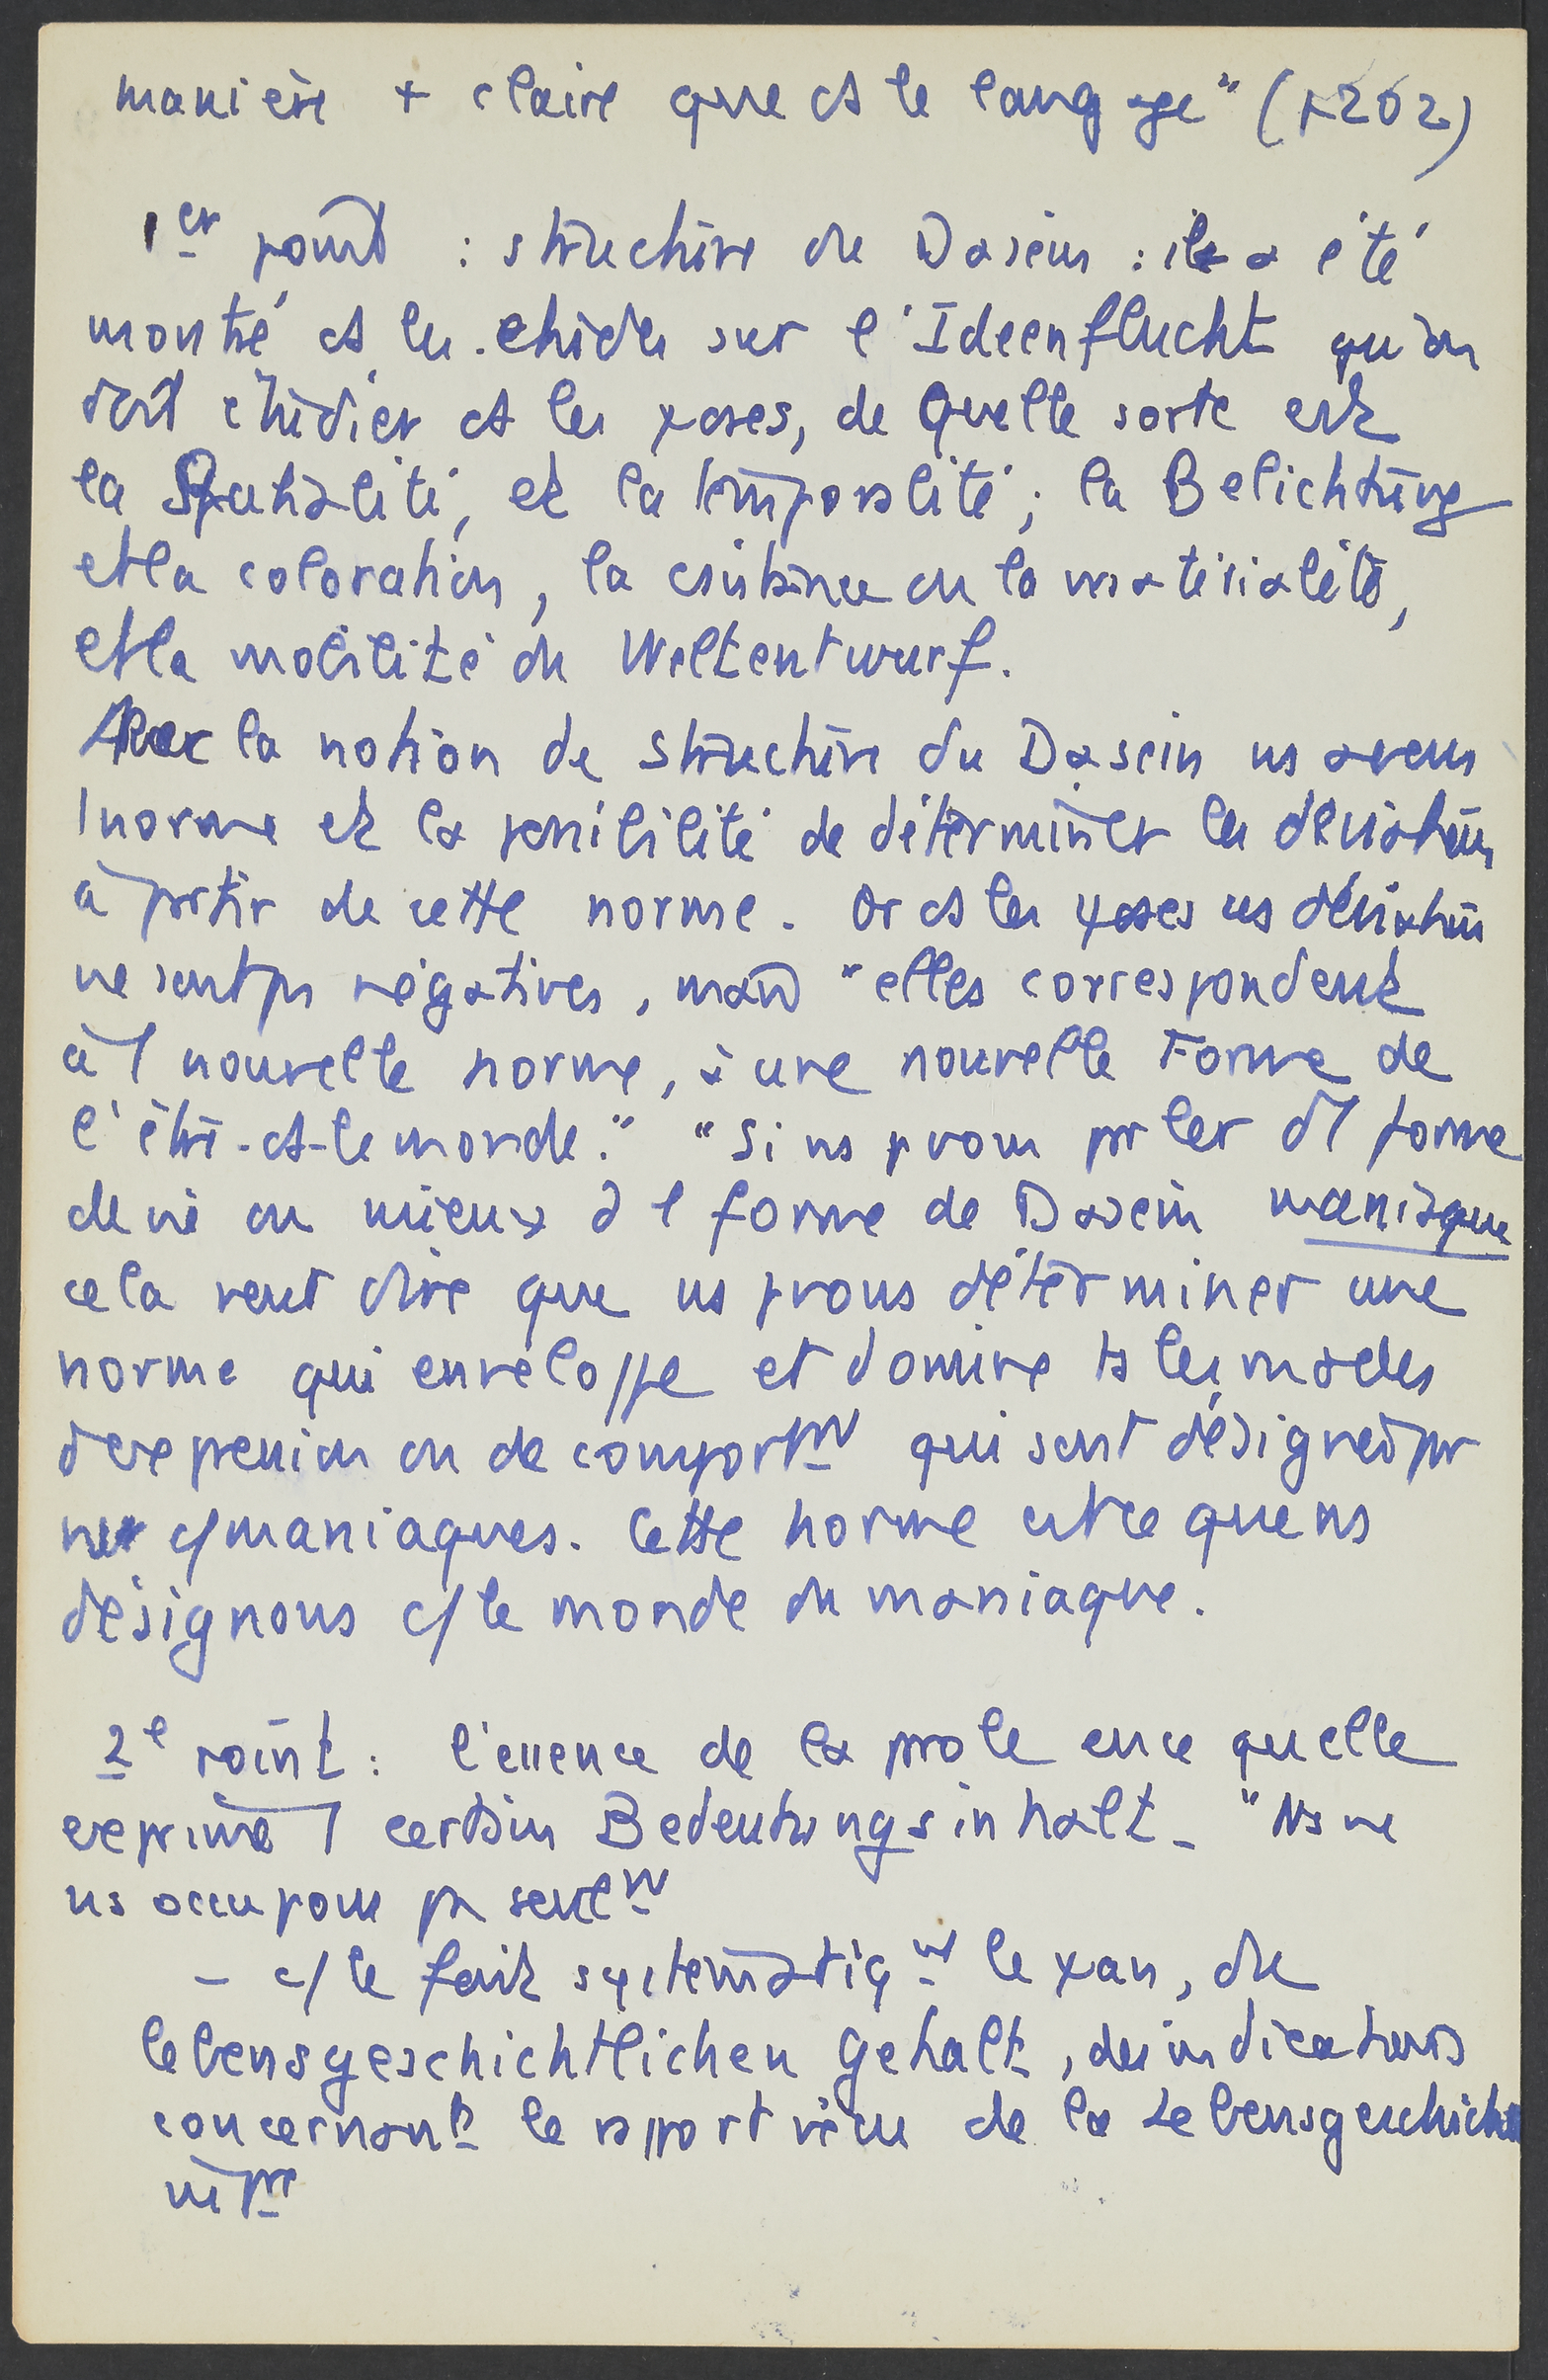 manière + claire que ds le langage" (p 202)
1er point : structure du Dasein : il a été
montré ds les études sur l'Ideenflucht qu'on
doit étudier ds les ψoses, de quelle sorte est
la Spatialité, et la temporalité ; la Belichtung
et la coloration, la csistance ou la matérialité,
et la mobilité du Weltentwurf.
Avec la notion de structure du Dasein ns avons
1 norme et la possibilité de déterminer les déviations
à partir de cette norme. Or ds les ψoses ces déviations
ne sont ps négatives, mais "elles correspondent
à 1 nouvelle norme, à une nouvelle Forme de
l'être-ds-le monde." "Si ns pvons prler d'1 forme
de vie ou mieux d'1 forme de Dasein maniaque
cela veut dire que ns pvons déterminer une
norme qui enveloppe et domine ts les modes
d'expression ou de comportmt qui sont désignés pr
ns c/ maniaques. Cette norme est ce que ns
désignons c/ le monde du maniaque.
2e point : l'essence de la prole en ce quelle
exprime 1 certain Bedeutungsinhalt - "Ns ne
ns occupons ps seulemt
- c/ le fait systématiqmt le ψan, du
lebensgeschichtlichen Gehalt, des indications
concernants le rapport vécu de la Lebensgeschichte